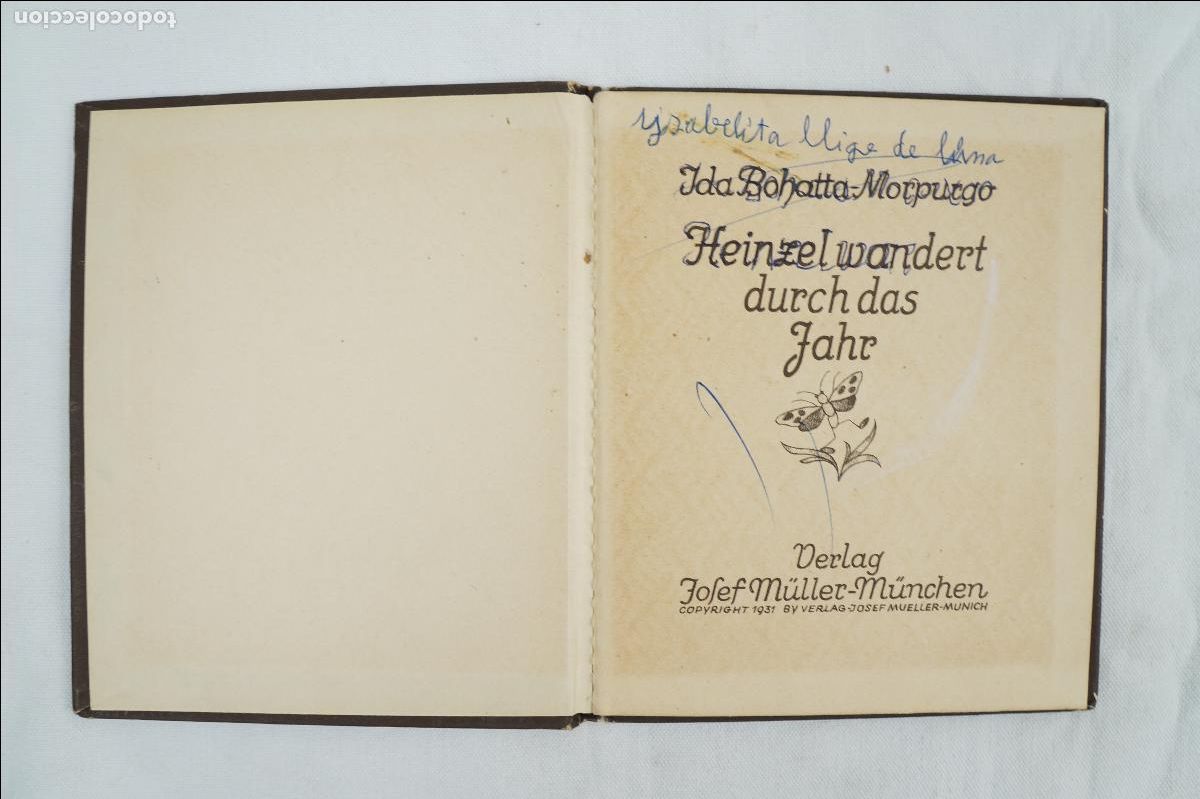 todocoleccion
Ysabelita de
Ida Bohatta-Morpurgo
Heinzel wandert
durch das
Jahr
Verlag
Joſef Müller-München
COPYRIGHT 1931 BY VERLAG-JOSEF MUELLER-MUNICH